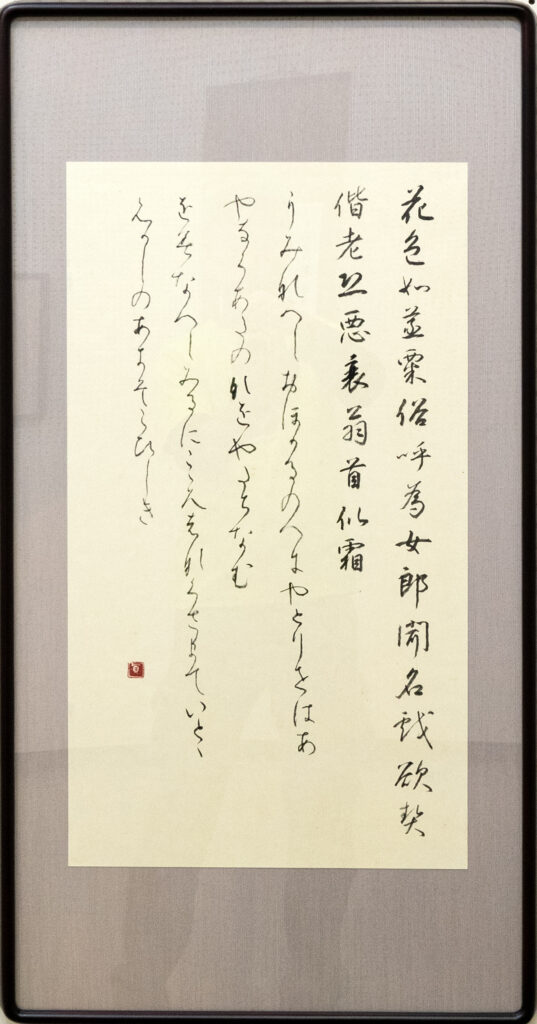 花色如蒸粟俗呼為女郎聞名戯欲契
偕老恐悪衰翁首似霜
をみなへしおほかるのへにやとりせはあ
やなくあたのなをやたちなむ
をみなへしみるにこゝろはなくさまていとゝ
むかしのあきそこひしき